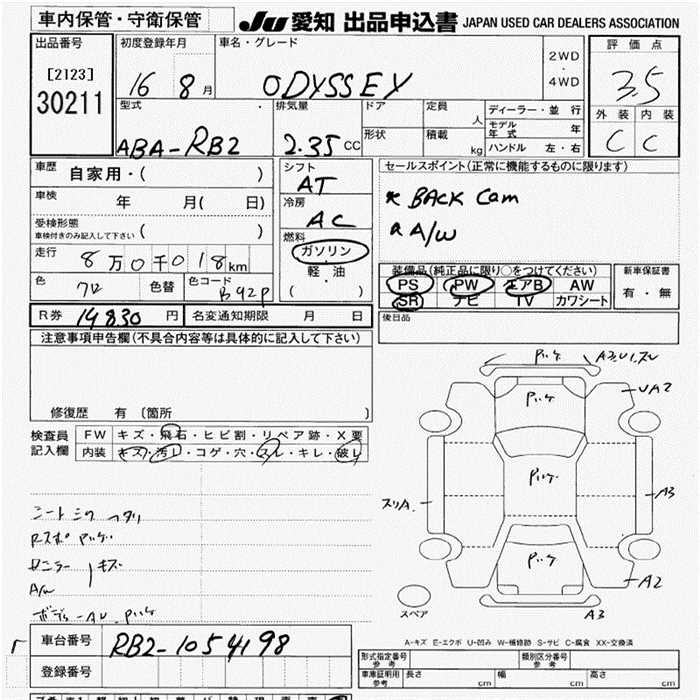 車内保管・守衛保管
JU 愛知 出品申込書 JAPAN USED CAR DEALERS ASSOCIATION
出品番号
[2123]
30211
初度登録年月
16 8 月
車名・グレード
ODYSSEY
2WD
・
4WD
評価点
3.5
外装 内装
C C
型式
ABA-RB2
排気量
2.35 CC
ドア
形状
定員 人
積載 kg
ディーラー・並行
モデル年式 年
ハンドル 左・右
車歴
自家用・( )
車検 年 月( 日)
受検形態
車検付きのみ記入して下さい ( )
走行 8万0千018km
色 色替 色コード B92P
シフト
AT
冷房
AC
燃料
ガソリン
軽・油
( )
セールスポイント(正常に機能するものに限ります)
* BACK Cam
* A/W
装備品(純正品に限り○をつけてください)
PS PW エアB AW
SR ナビ TV カワシート
新車保証書
有・無
後日品
R券 14830 円 名変通知期限 月 日
注意事項申告欄(不具合内容等は具体的に記入して下さい)
修復歴 有 〔箇所 〕
検査員
記入欄
FW キズ・飛石・ヒビ割・リペア跡・X要
内装 キズ・汚レ・コゲ・穴・スレ・キレ・破レ
A/W
キズ
車台番号 RB2-1054198
登録番号
A3
UA2
スリA
A3
A2
A3
スペア
A-キズ E-エクボ U-凹み W-補修跡 S-サビ C-腐食 XX-交換済
形式指定番号
参考
類別区分番号
参考
車庫証明用
参考
長さ cm 幅 cm 高さ cm